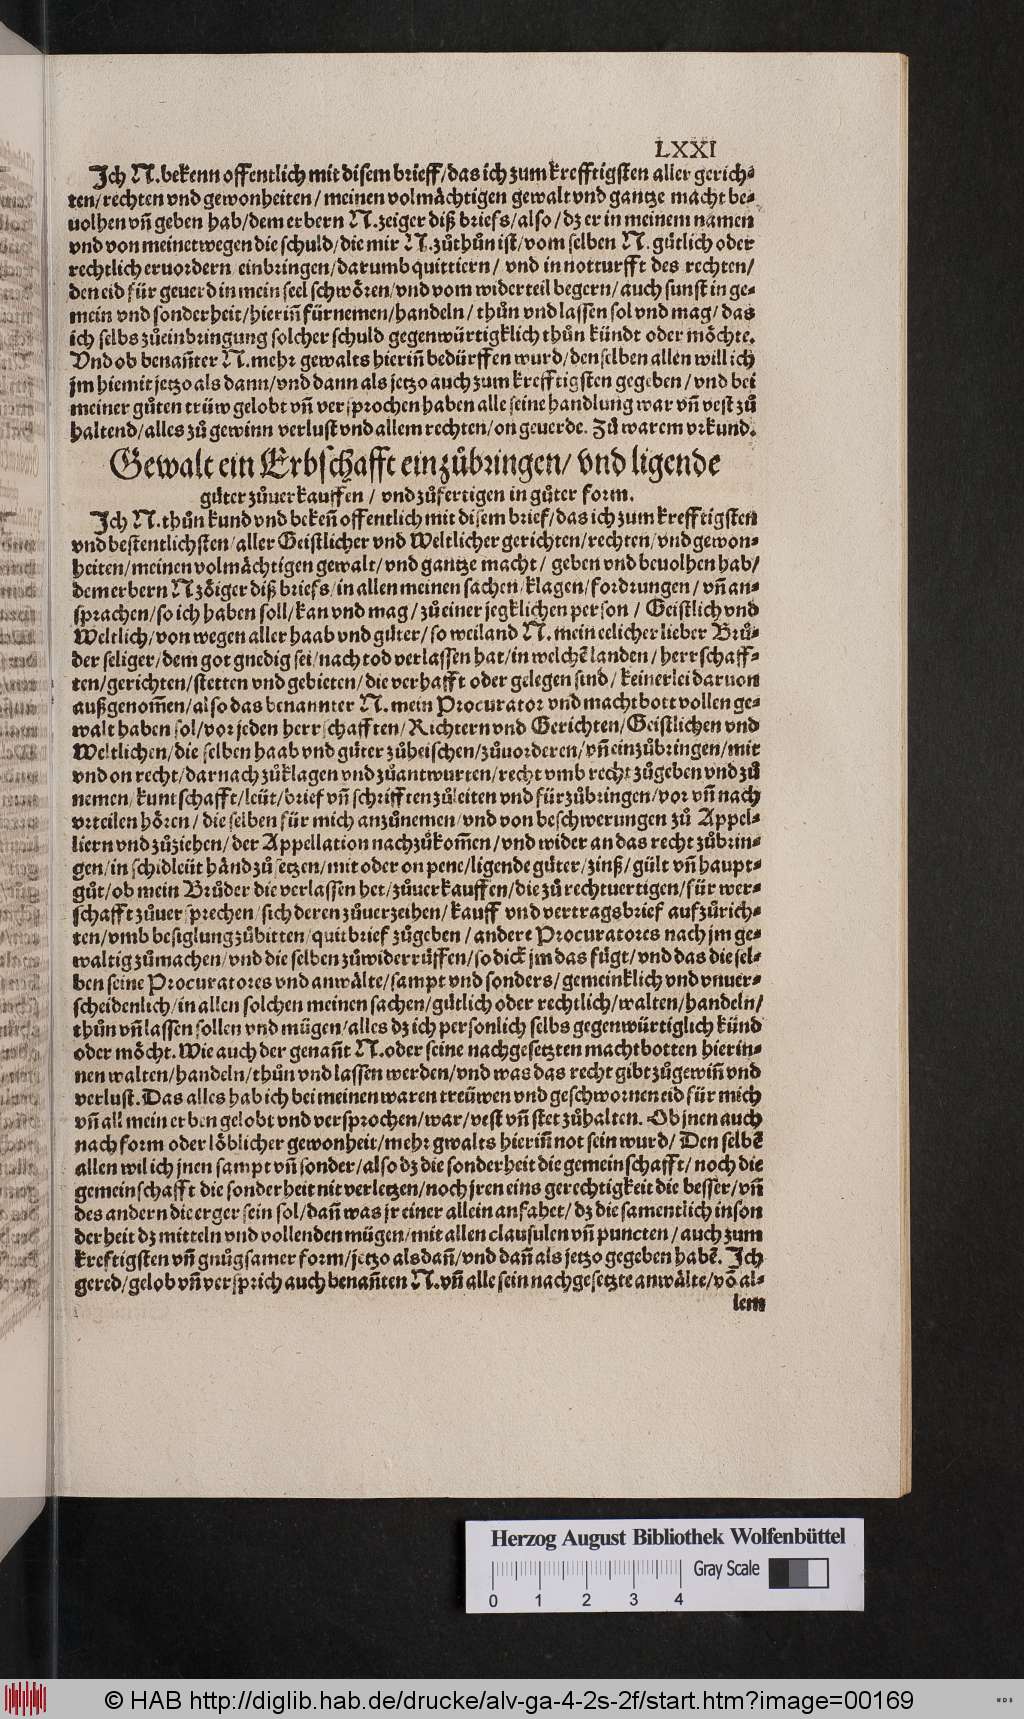 LXXI
Ich N. bekenn offentlich mit disem brieff/ das ich zum krefftigsten aller gerich⸗
ten/ rechten vnd gewonheiten/ meinen volmächtigen gewalt vnd gantze macht be⸗
uolhen vñ geben hab/ dem erbern N. zeiger diß briefs/ also/ dz er in meinem namen
vnd von meinetwegen die schuld/ die mir N. zůthůn ist/ vom selben N. gůtlich oder
rechtlich eruordern einbringen/ darumb quittiern/ vnd in notturfft des rechten/
den eid für geuerd in mein seel schwören/ vnd vom widerteil begern/ auch sunst in ge⸗
mein vnd sonderheit/ hieriñ fürnemen/ handeln/ thůn vnd lassen sol vnd mag/ das
ich selbs zůeinbringung solcher schuld gegenwürtigklich thůn kündt oder möchte.
Vnd ob benañter N. mehr gewalts hieriñ bedürffen wurd/ den selben allen will ich
jm hiemit jetzo als dann/ vnd dann als jetzo auch zum krefftigsten gegeben/ vnd bei
meiner gůten trüw gelobt vñ versprochen haben alle seine handlung war vñ vest zů
haltend/ alles zů gewinn verlust vnd allem rechten/ on geuerde. Zů warem vrkund.
Gewalt ein Erbschafft einzůbringen/ vnd ligende
gůter zůuerkauffen/ vnd zůfertigen in gůter form.
Ich N. thůn kund vnd bekeñ offentlich mit disem brief/ das ich zum krefftigsten
vnd bestentlichsten/ aller Geistlicher vnd Weltlicher gerichten/ rechten/ vnd gewon⸗
heiten/ meinen volmächtigen gewalt/ vnd gantze macht/ geben vnd beuolhen hab/
dem erbern N zöiger diß briefs/ in allen meinen sachen/ klagen/ fordrungen/ vñ an⸗
sprachen/ so ich haben soll/ kan vnd mag/ zů einer jegklichen person/ Geistlich vnd
Weltlich/ von wegen aller haab vnd gůter/ so weiland N. mein eelicher lieber Brů⸗
der seliger/ dem got gnedig sei/ nach tod verlassen hat/ in welchē landen/ herrschaff⸗
ten/ gerichten/ stetten vnd gebieten/ die verhafft oder gelegen sind/ keinerlei daruon
außgenom̃en/ also das benannter N. mein Procurator vnd machtbott vollen ge⸗
walt haben sol/ vor jeden herrschafften/ Richtern vnd Gerichten/ Geistlichen vnd
Weltlichen/ die selben haab vnd gůter zůheischen/ zůuorderen/ vñ einzůbringen/ mit
vnd on recht/ darnach zůklagen vnd zůantwurten/ recht vmb recht zůgeben vnd zů
nemen/ kuntschafft/ leüt/ brief vñ schrifften zůleiten vnd fürzůbringen/ vor vñ nach
vrteilen hören/ die selben für mich anzůnemen/ vnd von beschwerungen zů Appel⸗
liern vnd zůziehen/ der Appellation nachzůkom̃en/ vnd wider an das recht zůbrin⸗
gen/ in schidleüt händ zů setzen/ mit oder on pene/ ligende gůter/ zinß/ gült vñ haupt⸗
gůt/ ob mein Brůder die verlassen het/ zůuerkauffen/ die zů rechtuertigen/ für wer⸗
schafft zůuersprechen/ sich deren zůuerzeihen/ kauff vnd vertragsbrief aufzůrich⸗
ten/ vmb besiglung zůbitten/ quitbrief zůgeben/ andere Procuratores nach jm ge⸗
waltig zůmachen/ vnd die selben zůwiderrůffen/ so dick jm das fůgt/ vnd das die sel⸗
ben seine Procuratores vnd anwälte/ sampt vnd sonders/ gemeinklich vnd vnuer⸗
scheidenlich/ in allen solchen meinen sachen/ gůtlich oder rechtlich/ walten/ handeln/
thůn vñ lassen sollen vnd mügen/ alles dz ich personlich selbs gegenwürtiglich künd
oder möcht. Wie auch der genañt N. oder seine nachgesetzten machtbotten hierin⸗
nen walten/ handeln/ thůn vnd lassen werden/ vnd was das recht gibt zůgewiñ vnd
verlust. Das alles hab ich bei meinen waren treüwen vnd geschwornen eid für mich
vñ all mein erben gelobt vnd versprochen/ war/ vest vñ stet zůhalten. Ob jnen auch
nach form oder löblicher gewonheit/ mehr gwalts hieriñ not sein wurd/ Den selbē
allen wil ich jnen sampt vñ sonder/ also dz die sonderheit die gemeinschafft/ noch die
gemeinschafft die sonderheit nit verletzen/ noch jren eins gerechtigkeit die besser/ vñ
des andern die erger sein sol/ dañ was jr einer allein anfahet/ dz die samentlich inson
derheit dz mitteln vnd vollenden mügen/ mit allen clausulen vñ puncten/ auch zum
kreftigsten vñ gnůgsamer form/ jetzo als dañ/ vnd dañ als jetzo gegeben habē. Ich
gered/ gelob vñ versprich auch benañten N. vñ alle sein nachgesetzte anwälte/ vō al⸗
lem
Herzog August Bibliothek Wolfenbüttel
Gray Scale
0 1 2 3 4
© HAB http://diglib.hab.de/drucke/alv-ga-4-2s-2f/start.htm?image=00169
WDB